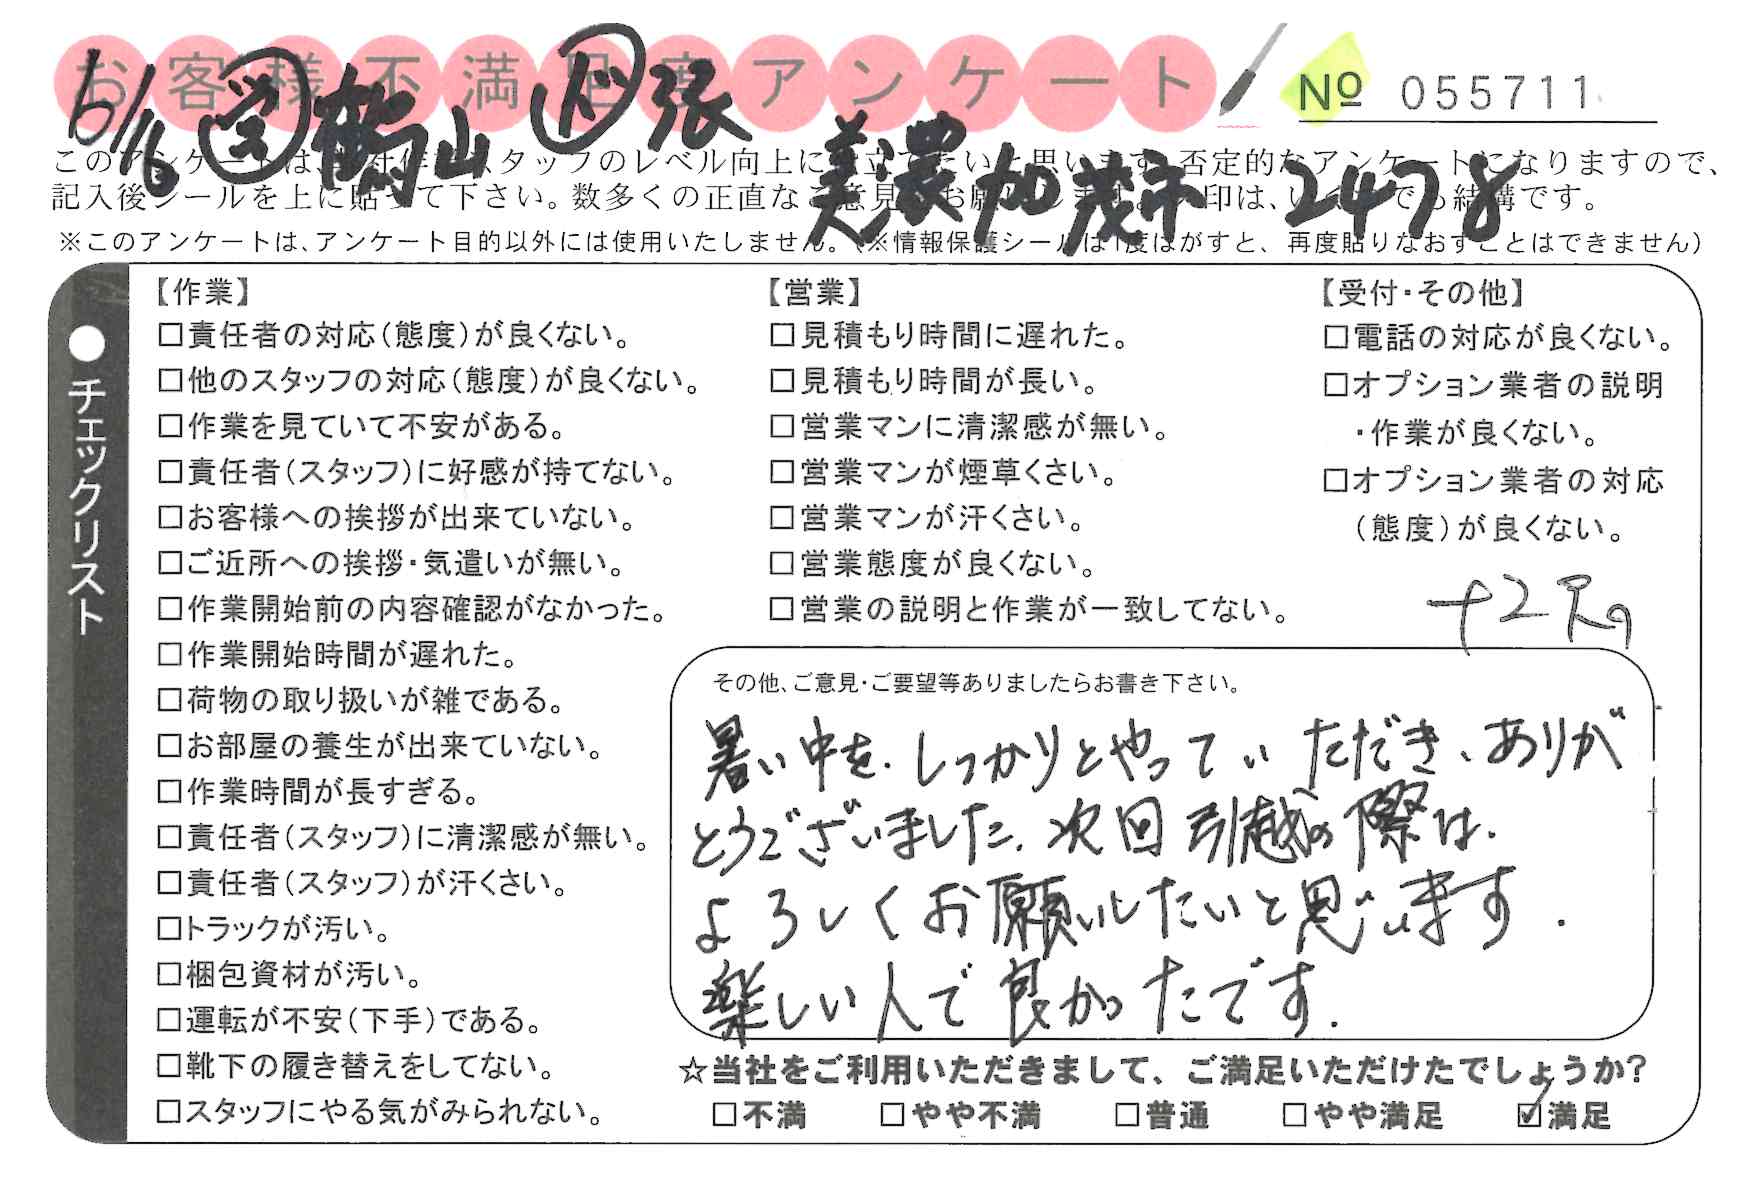 お客様不満足度アンケート
№ 055711
6/16 営 鶴山 ド 張
美濃加茂市 2478
このアンケートは、スタッフのレベル向上に役立てたいと思います。否定的なアンケートになりますので、
記入後シールを上に貼って下さい。数多くの正直なご意見お願いします。印は、いくつでも結構です。
※このアンケートは、アンケート目的以外には使用いたしません。(※情報保護シールは1度はがすと、再度貼りなおすことはできません)
●チェックリスト
【作業】
□責任者の対応(態度)が良くない。
□他のスタッフの対応(態度)が良くない。
□作業を見ていて不安がある。
□責任者(スタッフ)に好感が持てない。
□お客様への挨拶が出来ていない。
□ご近所への挨拶・気遣いが無い。
□作業開始前の内容確認がなかった。
□作業開始時間が遅れた。
□荷物の取り扱いが雑である。
□お部屋の養生が出来ていない。
□作業時間が長すぎる。
□責任者(スタッフ)に清潔感が無い。
□責任者(スタッフ)が汗くさい。
□トラックが汚い。
□梱包資材が汚い。
□運転が不安(下手)である。
□靴下の履き替えをしてない。
□スタッフにやる気がみられない。
【営業】
□見積もり時間に遅れた。
□見積もり時間が長い。
□営業マンに清潔感が無い。
□営業マンが煙草くさい。
□営業マンが汗くさい。
□営業態度が良くない。
□営業の説明と作業が一致してない。
【受付・その他】
□電話の対応が良くない。
□オプション業者の説明
・作業が良くない。
□オプション業者の対応
(態度)が良くない。
その他、ご意見・ご要望等ありましたらお書き下さい。
暑い中を、しっかりとやっていただき、ありが
とうございました。次回引越の際は、
よろしくお願いしたいと思います.
楽しい人で良かったです.
☆当社をご利用いただきまして、ご満足いただけたでしょうか?
□不満 □やや不満 □普通 □やや満足 ☑満足